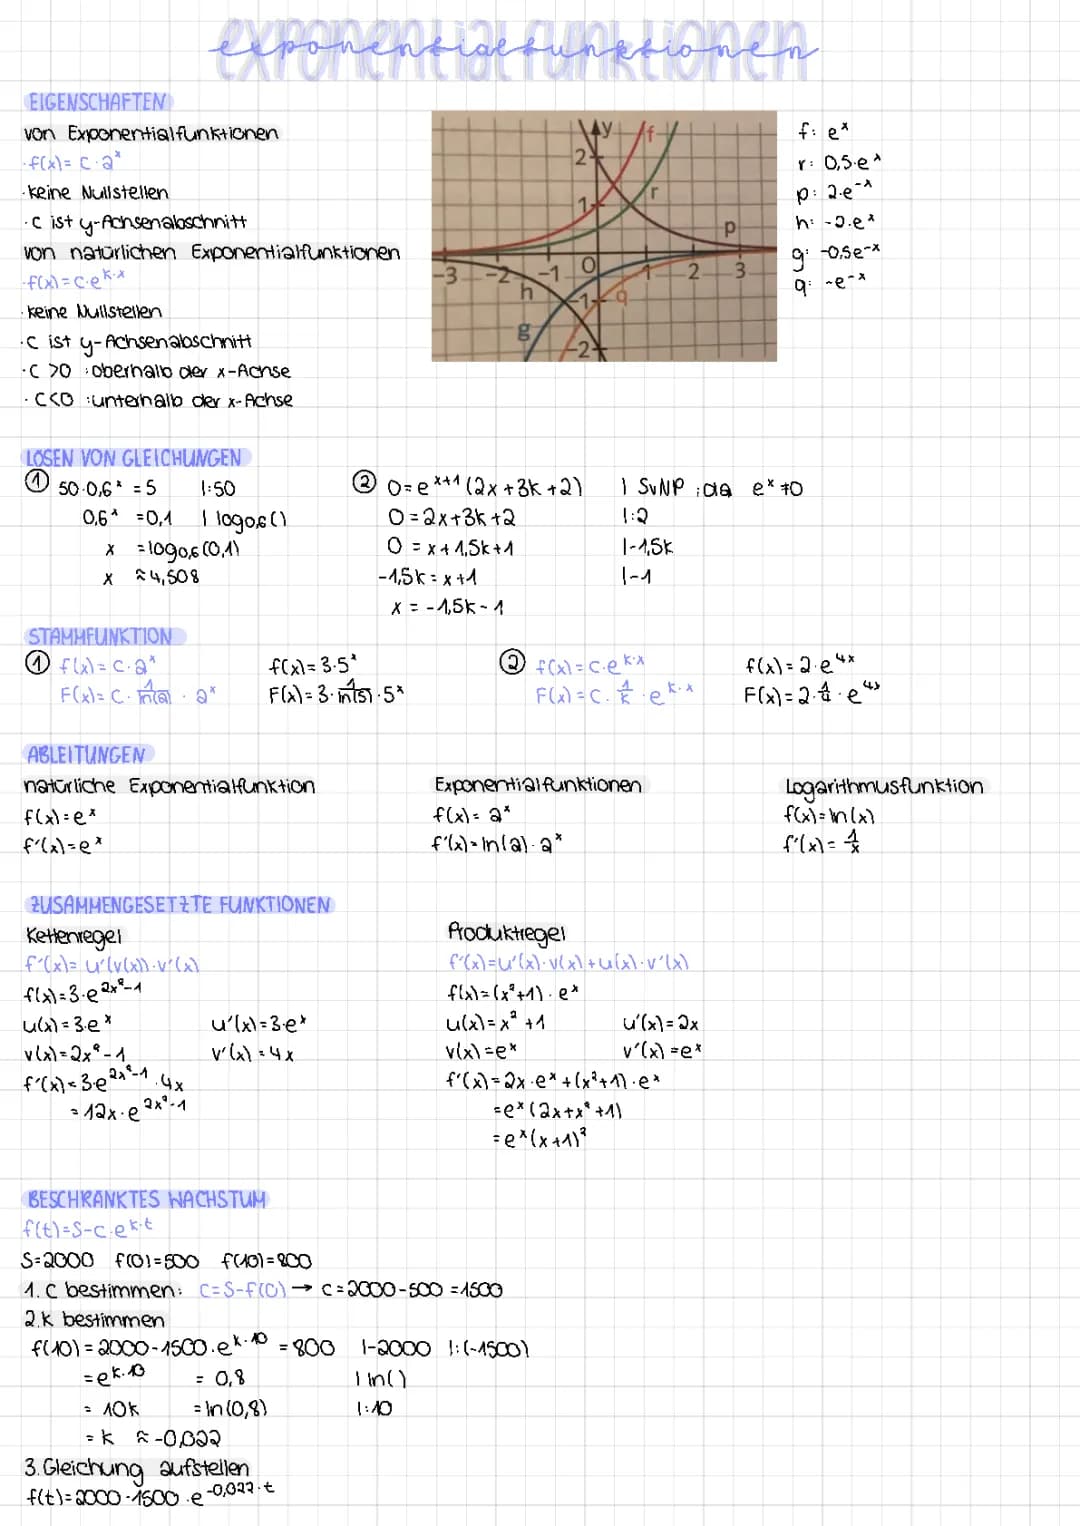 exponentialfunktionen
EIGENSCHAFTEN
von Exponentialfunktionen
· f(x) = c · a^x
· keine Nullstellen
· c ist y-Achsenabschnitt
von natürlichen Exponentialfunktionen
· f(x) = c · e^k·x
· keine Nullstellen
· c ist y-Achsenabschnitt
· C > 0 : oberhalb der x-Achse
· C < 0 : unterhalb der x-Achse
y f r p h g q
2 1 0 -1 -2
-3 -2 -1 1 2 3
f: e^x
r: 0,5·e^x
p: 2·e^-x
h: -2·e^x
g: -0,5e^-x
q: -e^-x
LÖSEN VON GLEICHUNGEN
① 50·0,6^x = 5 |:50
0,6^x = 0,1 | log0,6()
x = log0,6(0,1)
x ≈ 4,508
② 0 = e^x+1 (2x+3k+2) | SvNP ; da e^x ≠ 0
0 = 2x+3k+2 |:2
0 = x+1,5k+1 |-1,5k
-1,5k = x+1 |-1
x = -1,5k-1
STAMMFUNKTION
① f(x) = c · a^x f(x) = 3·5^x
F(x) = c · 1/ln(a) · a^x F(x) = 3 · 1/ln(5) · 5^x
② f(x) = c·e^k·x f(x) = 2·e^4x
F(x) = c · 1/k · e^k·x F(x) = 2 · 1/4 · e^4x
ABLEITUNGEN
natürliche Exponentialfunktion
f(x) = e^x
f'(x) = e^x
Exponentialfunktionen
f(x) = a^x
f'(x) = ln(a) · a^x
Logarithmusfunktion
f(x) = ln(x)
f'(x) = 1/x
ZUSAMMENGESETZTE FUNKTIONEN
Kettenregel
f'(x) = u'(v(x)) · v'(x)
f(x) = 3·e^2x²-1
u(x) = 3·e^x u'(x) = 3·e^x
v(x) = 2x²-1 v'(x) = 4x
f'(x) = 3·e^2x²-1 · 4x
= 12x · e^2x²-1
Produktregel
f'(x) = u'(x)·v(x) + u(x)·v'(x)
f(x) = (x²+1) · e^x
u(x) = x²+1 u'(x) = 2x
v(x) = e^x v'(x) = e^x
f'(x) = 2x·e^x + (x²+1)·e^x
= e^x (2x+x²+1)
= e^x (x+1)²
BESCHRÄNKTES WACHSTUM
f(t) = S-c·e^k·t
S = 2000 f(0) = 500 f(10) = 800
1. C bestimmen: C = S-f(0) → C = 2000-500 = 1500
2. K bestimmen
f(10) = 2000-1500·e^k·10 = 800 |-2000 |:(-1500)
= e^k·10 = 0,8 | ln()
= 10k = ln(0,8) |:10
= k ≈ -0,022
3. Gleichung aufstellen
f(t) = 2000-1500·e^-0,022·t